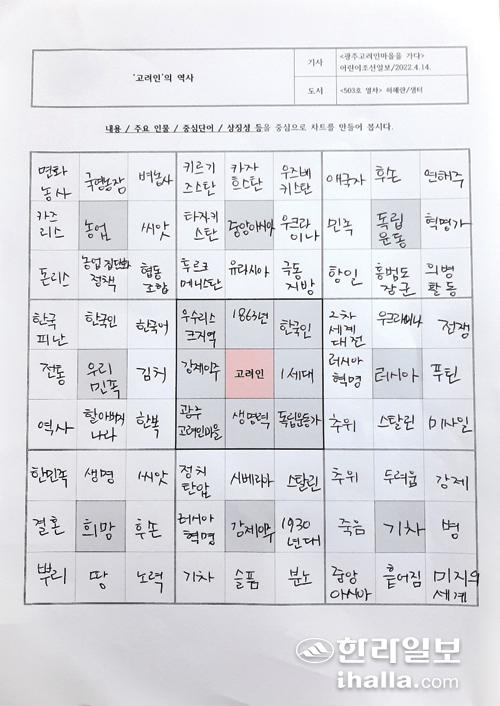 '고려인'의 역사
기사
<광주고려인마을을 가다>
어린이조선일보/2022.4.14.
도서
<503호 열차> 허혜란/샘터
내용 / 주요 인물 / 중심단어 / 상징성 들을 중심으로 차트를 만들어 봅시다.
면화 농사 국영농장 벼농사 키르기즈스탄 카자흐스탄 우즈베키스탄 애국자 후손 연해주
카즈리스 농업 씨앗 타지키스탄 중앙아시아 우크라이나 민족 독립운동 혁명가
돈리스 농업 집단화 정책 협동조합 투르크메니스탄 유라시아 극동지방 항일 홍범도 장군 의병활동
한국피난 한국인 한국어 우수리스크지역 1863년 한국인 2차 세계대전 우크라이나 전쟁
전통 우리민족 김치 강제이주 고려인 1세대 러시아 혁명 러시아 푸틴
역사 할아버지 나라 한복 광주 고려인마을 생명력 독립운동가 추위 스탈린 미사일
한민족 생명 씨앗 정치탄압 시베리아 스탈린 추위 두려움 강제
결혼 희망 후손 러시아 혁명 강제이주 1930년대 죽음 기차 병
뿌리 땅 노력 기차 슬픔 분노 중앙아시아 흩어짐 미지의 세계
한라일보
ihalla.com